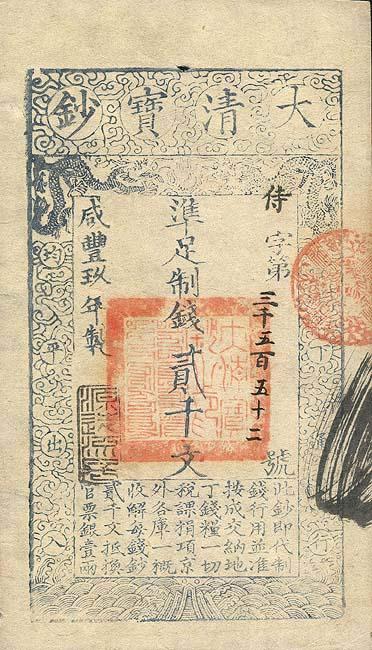 大清寶鈔
下行
侍字第三千五百五十二號
準足制錢貳千文
咸豐玖年製
均平出入
此鈔即代制
錢行用並准
按成交納地
丁錢糧一切
稅課捐項京
外各庫一概
收解每錢鈔
貳千文抵換
官票銀壹兩